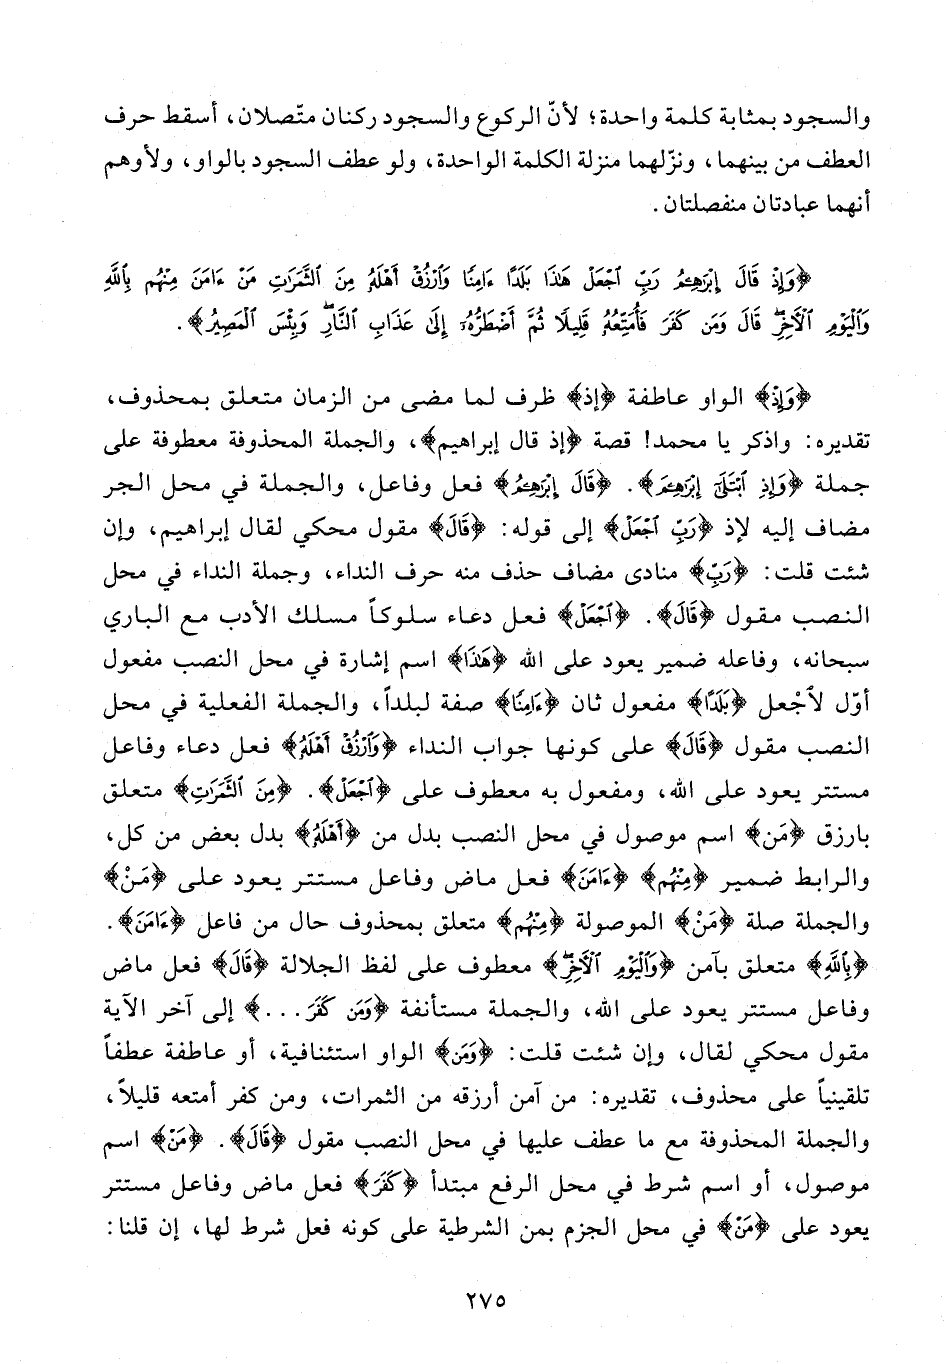 والسجود بمثابة كلمة واحدة؛ لأنّ الركوع والسجود ركنان متّصلان، أسقط حرف
العطف من بينهما، ونزّلهما منزلة الكلمة الواحدة، ولو عطف السجود بالواو، ولأوهم
أنهما عبادتان منفصلتان.
﴿وَإِذْ قَالَ إِبْرَٰهِـۧمُ رَبِّ ٱجْعَلْ هَٰذَا بَلَدًا ءَامِنًا وَٱرْزُقْ أَهْلَهُۥ مِنَ ٱلثَّمَرَٰتِ مَنْ ءَامَنَ مِنْهُم بِٱللَّهِ
وَٱلْيَوْمِ ٱلْءَاخِرِۖ قَالَ وَمَن كَفَرَ فَأُمَتِّعُهُۥ قَلِيلًا ثُمَّ أَضْطَرُّهُۥٓ إِلَىٰ عَذَابِ ٱلنَّارِۖ وَبِئْسَ ٱلْمَصِيرُ﴾.
﴿وَإِذْ﴾ الواو عاطفة ﴿إذ﴾ ظرف لما مضى من الزمان متعلق بمحذوف،
تقديره: واذكر يا محمد! قصة ﴿إذ قال إبراهيم﴾، والجملة المحذوفة معطوفة على
جملة ﴿وَإِذِ ٱبْتَلَىٰٓ إِبْرَٰهِـۧمَ﴾. ﴿قَالَ إِبْرَٰهِـۧمُ﴾ فعل وفاعل، والجملة في محل الجر
مضاف إليه لإذ ﴿رَبِّ ٱجْعَلْ﴾ إلى قوله: ﴿قَالَ﴾ مقول محكي لقال إبراهيم، وإن
شئت قلت: ﴿رَبِّ﴾ منادى مضاف حذف منه حرف النداء، وجملة النداء في محل
النصب مقول ﴿قَالَ﴾. ﴿ٱجْعَلْ﴾ فعل دعاء سلوكاً مسلك الأدب مع الباري
سبحانه، وفاعله ضمير يعود على الله ﴿هَٰذَا﴾ اسم إشارة في محل النصب مفعول
أوّل لاجْعل ﴿بَلَدًا﴾ مفعول ثان ﴿ءَامِنًا﴾ صفة لبلداً، والجملة الفعلية في محل
النصب مقول ﴿قَالَ﴾ على كونها جواب النداء ﴿وَٱرْزُقْ أَهْلَهُۥ﴾ فعل دعاء وفاعل
مستتر يعود على الله، ومفعول به معطوف على ﴿ٱجْعَلْ﴾. ﴿مِنَ ٱلثَّمَرَٰتِ﴾ متعلق
بارزق ﴿مَن﴾ اسم موصول في محل النصب بدل من ﴿أَهْلَهُۥ﴾ بدل بعض من كل،
والرابط ضمير ﴿مِنْهُم﴾ ﴿ءَامَنَ﴾ فعل ماض وفاعل مستتر يعود على ﴿مَنْ﴾
والجملة صلة ﴿مَنْ﴾ الموصولة ﴿مِنْهُم﴾ متعلق بمحذوف حال من فاعل ﴿ءَامَنَ﴾.
﴿بِٱللَّهِ﴾ متعلق بآمن ﴿وَٱلْيَوْمِ ٱلْءَاخِرِۖ﴾ معطوف على لفظ الجلالة ﴿قَالَ﴾ فعل ماض
وفاعل مستتر يعود على الله، والجملة مستأنفة ﴿وَمَن كَفَرَ...﴾ إلى آخر الآية
مقول محكي لقال، وإن شئت قلت: ﴿وَمَن﴾ الواو استئنافية، أو عاطفة عطفاً
تلقينياً على محذوف، تقديره: من آمن أرزقه من الثمرات، ومن كفر أمتعه قليلاً،
والجملة المحذوفة مع ما عطف عليها في محل النصب مقول ﴿قَالَ﴾. ﴿مَنْ﴾ اسم
موصول، أو اسم شرط في محل الرفع مبتدأ ﴿كَفَرَ﴾ فعل ماض وفاعل مستتر
يعود على ﴿مَنْ﴾ في محل الجزم بمن الشرطية على كونه فعل شرط لها، إن قلنا:
٢٧٥